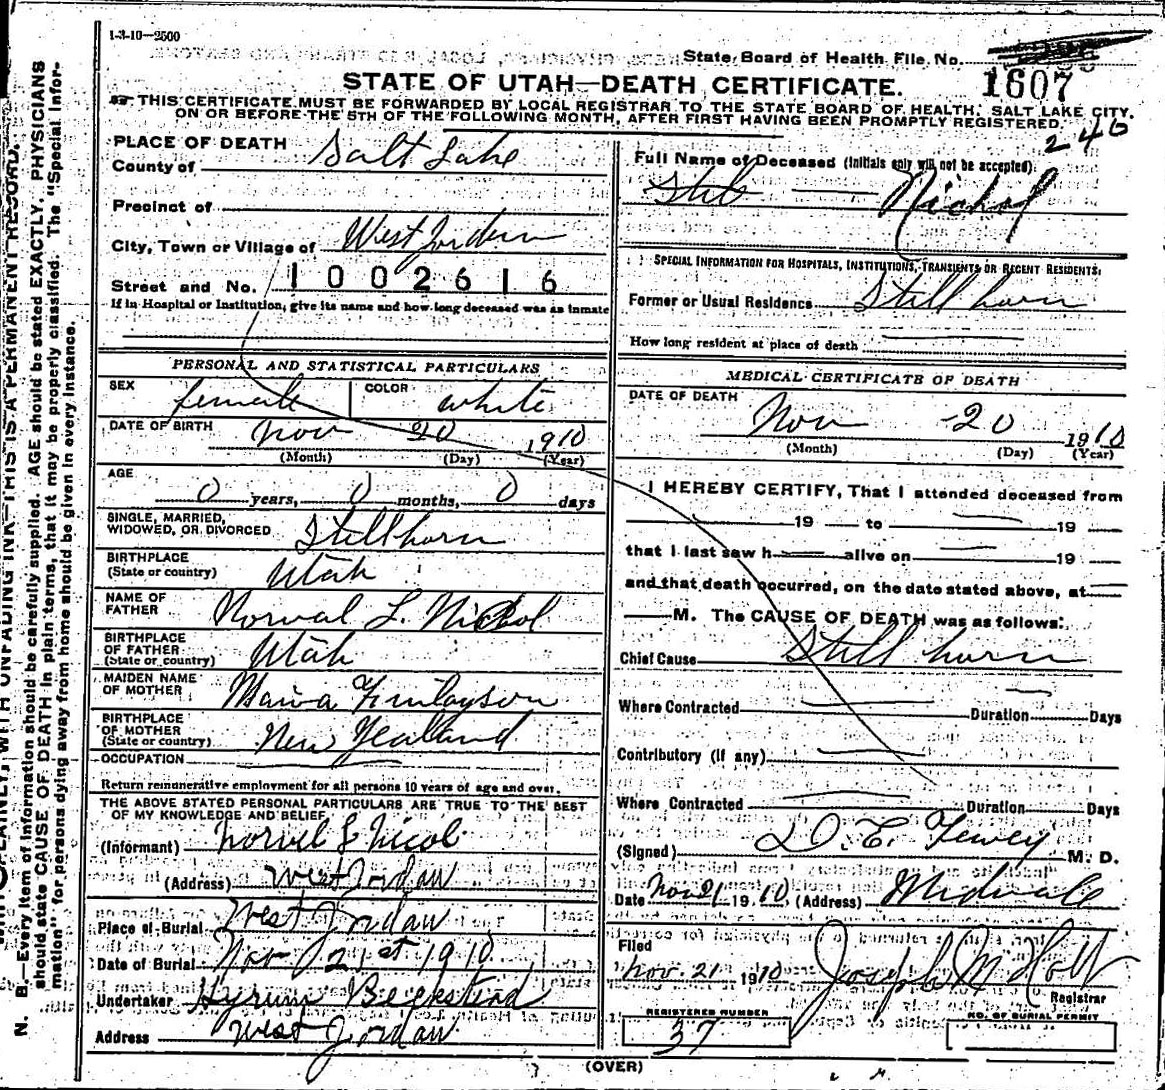 1-3-10—2500
State Board of Health File No.
1607
STATE OF UTAH—DEATH CERTIFICATE.
THIS CERTIFICATE MUST BE FORWARDED BY LOCAL REGISTRAR TO THE STATE BOARD OF HEALTH, SALT LAKE CITY,
ON OR BEFORE THE 5TH OF THE FOLLOWING MONTH, AFTER FIRST HAVING BEEN PROMPTLY REGISTERED.
246
PLACE OF DEATH
County of Salt Lake
Precinct of
City, Town or Village of West Jordan
Street and No. 1002616
If in Hospital or Institution, give its name and how long deceased was an inmate
PERSONAL AND STATISTICAL PARTICULARS
SEX female COLOR white
DATE OF BIRTH Nov 20 1910
(Month) (Day) (Year)
AGE
0 years, 0 months, 0 days
SINGLE, MARRIED,
WIDOWED, OR DIVORCED Stillborn
BIRTHPLACE
(State or country) Utah
NAME OF
FATHER Norval L. Nichol
BIRTHPLACE
OF FATHER
(State or country) Utah
MAIDEN NAME
OF MOTHER Finlayson
BIRTHPLACE
OF MOTHER
(State or country) New Zealand
OCCUPATION
Return remunerative employment for all persons 10 years of age and over.
THE ABOVE STATED PERSONAL PARTICULARS ARE TRUE TO THE BEST
OF MY KNOWLEDGE AND BELIEF
(Informant) Norvel L Nicol
(Address) West Jordan
Place of Burial West Jordan
Date of Burial Nov 21st 1910
Undertaker Hyrum Beckstead
Address West Jordan
Full Name of Deceased (Initials only will not be accepted)
Nichol
SPECIAL INFORMATION FOR HOSPITALS, INSTITUTIONS, TRANSIENTS OR RECENT RESIDENTS.
Former or Usual Residence Still born
How long resident at place of death
MEDICAL CERTIFICATE OF DEATH
DATE OF DEATH
Nov 20 1910
(Month) (Day) (Year)
I HEREBY CERTIFY, That I attended deceased from
19 to 19
that I last saw h alive on 19
and that death occurred, on the date stated above, at
M. The CAUSE OF DEATH was as follows:
Chief Cause Still born
Where Contracted Duration Days
Contributory (if any)
Where Contracted Duration Days
(Signed) M. D.
Date Nov 21 1910 (Address) Midvale
Filed
Nov. 21 1910 Joseph M Holt
Registrar
REGISTERED NUMBER
37
NO. OF BURIAL PERMIT
(OVER)
N. B.—Every item of information should be carefully supplied. AGE should be stated EXACTLY. PHYSICIANS
should state CAUSE OF DEATH in plain terms, that it may be properly classified. The "Special Infor-
mation" for persons dying away from home should be given in every instance.